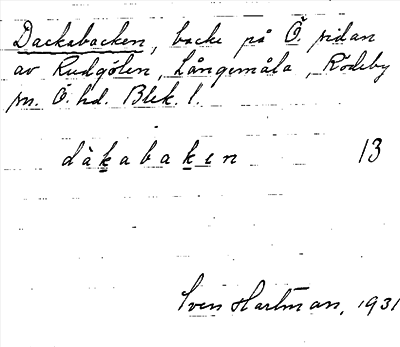 Dackabacken, backe på Ö. sidan
av Rudgölen, Långemåla, Rödeby
sn. Ö. hd. Blek. l.
dàkabaken 13
Sven Hartman, 1931